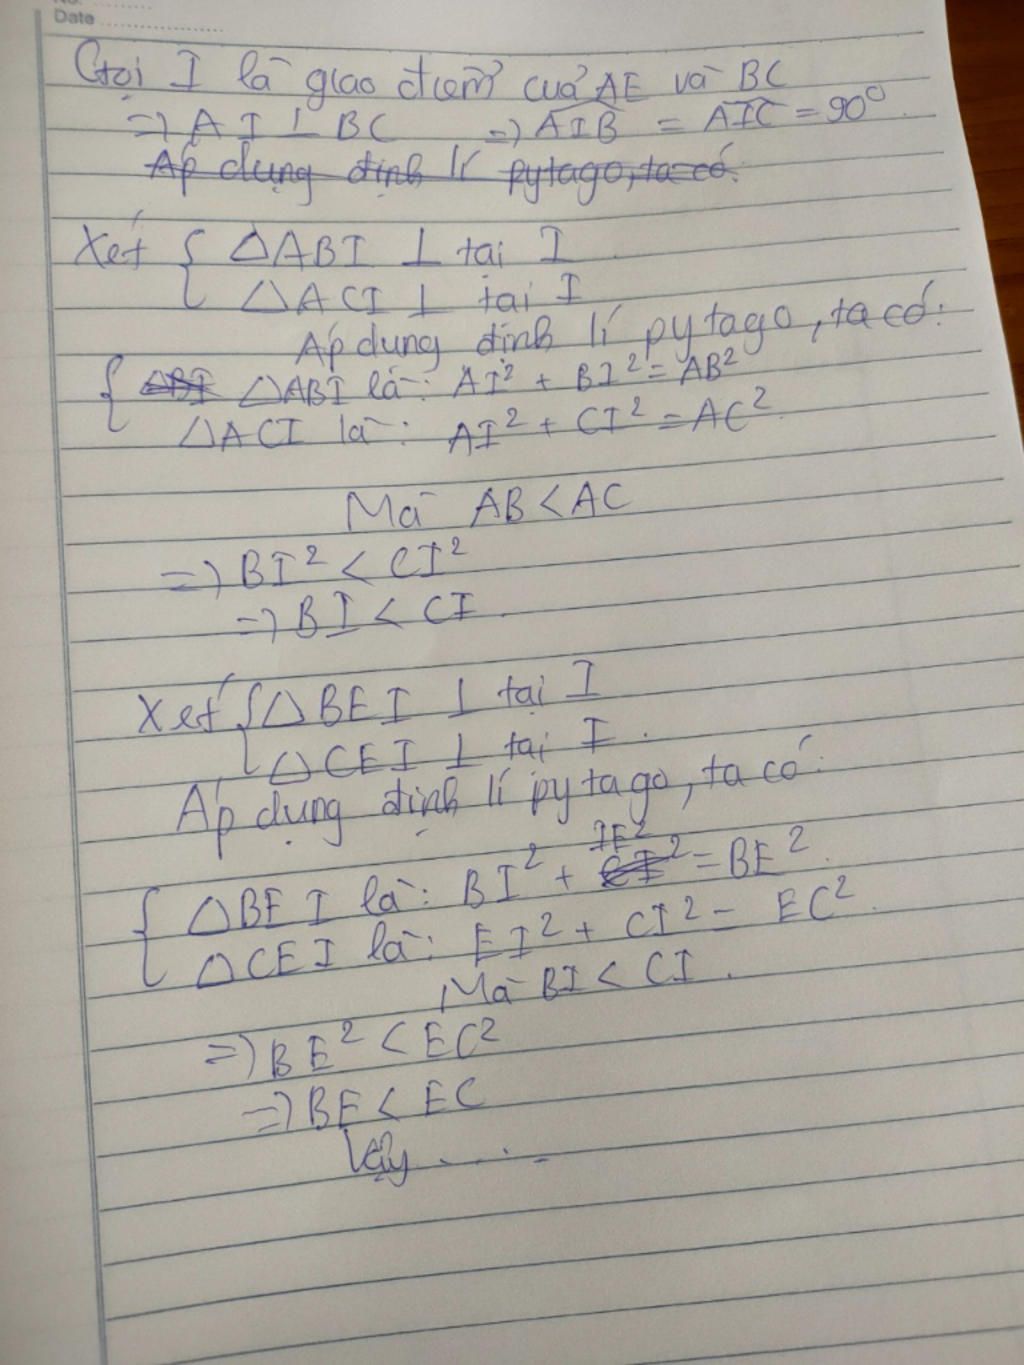 Date
Gọi I là giao điểm của AE và BC
=> AI ⊥ BC => AIB = AIC = 90°
Áp dụng định lí pytago, ta có:
Xét { △ABI ⊥ tại I
△ACI ⊥ tại I
Áp dụng định lí pytago, ta có:
{ △BI △ABI là: AI² + BI² = AB²
△ACI là: AI² + CI² = AC².
Mà AB < AC
=> BI² < CI²
=> BI < CI.
Xét { △BEI ⊥ tại I
△CEI ⊥ tại I.
Áp dụng định lí pytago, ta có:
IE²
{ △BEI là: BI² + CI² = BE².
△CEI là: EI² + CI² = EC².
Mà BI < CI.
=> BE² < EC²
=> BE < EC
Vậy .....